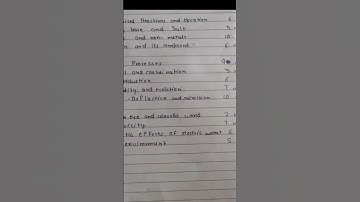 ical Reactions and equation 6
base and Salt 3
and non-metals 10
and its compound 6
Processes 9
and coordination 3
oduction 6
dity and evolution 7
Reflection and refraction 10
eye and colorful world 2
icity 7
tic effects of electric current 6
environment 5